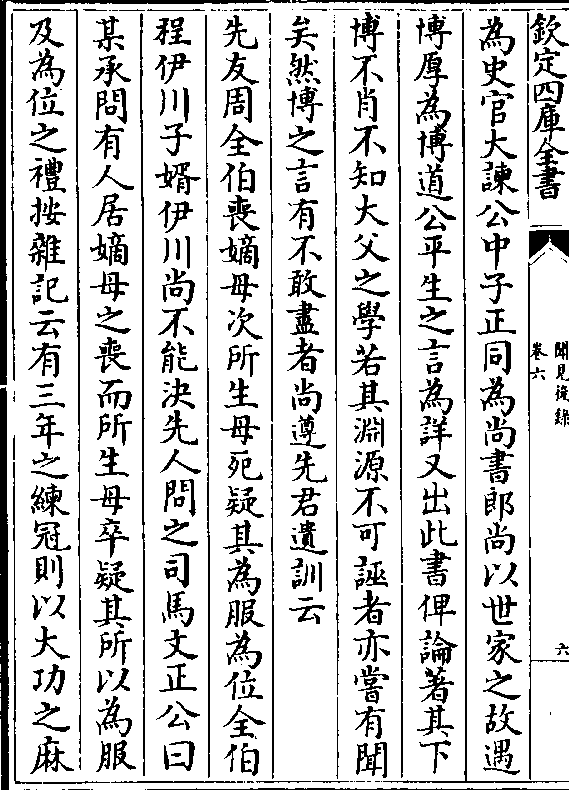 欽定四庫全書
聞見後錄
卷六
六
為史官大諫公中子正同為尚書郎尚以世家之故遇
博厚為博道公平生之言為詳又出此書俾論著其下
博不肖不知大父之學若其淵源不可誣者亦嘗有聞
矣然博之言有不敢盡者尚遵先君遺訓云
先友周全伯喪嫡母次所生母死疑其為服為位全伯
程伊川子婿伊川尚不能決先人問之司馬文正公曰
某承問有人居嫡母之喪而所生母卒疑其所以為服
及為位之禮按雜記云有三年之練冠則以大功之麻